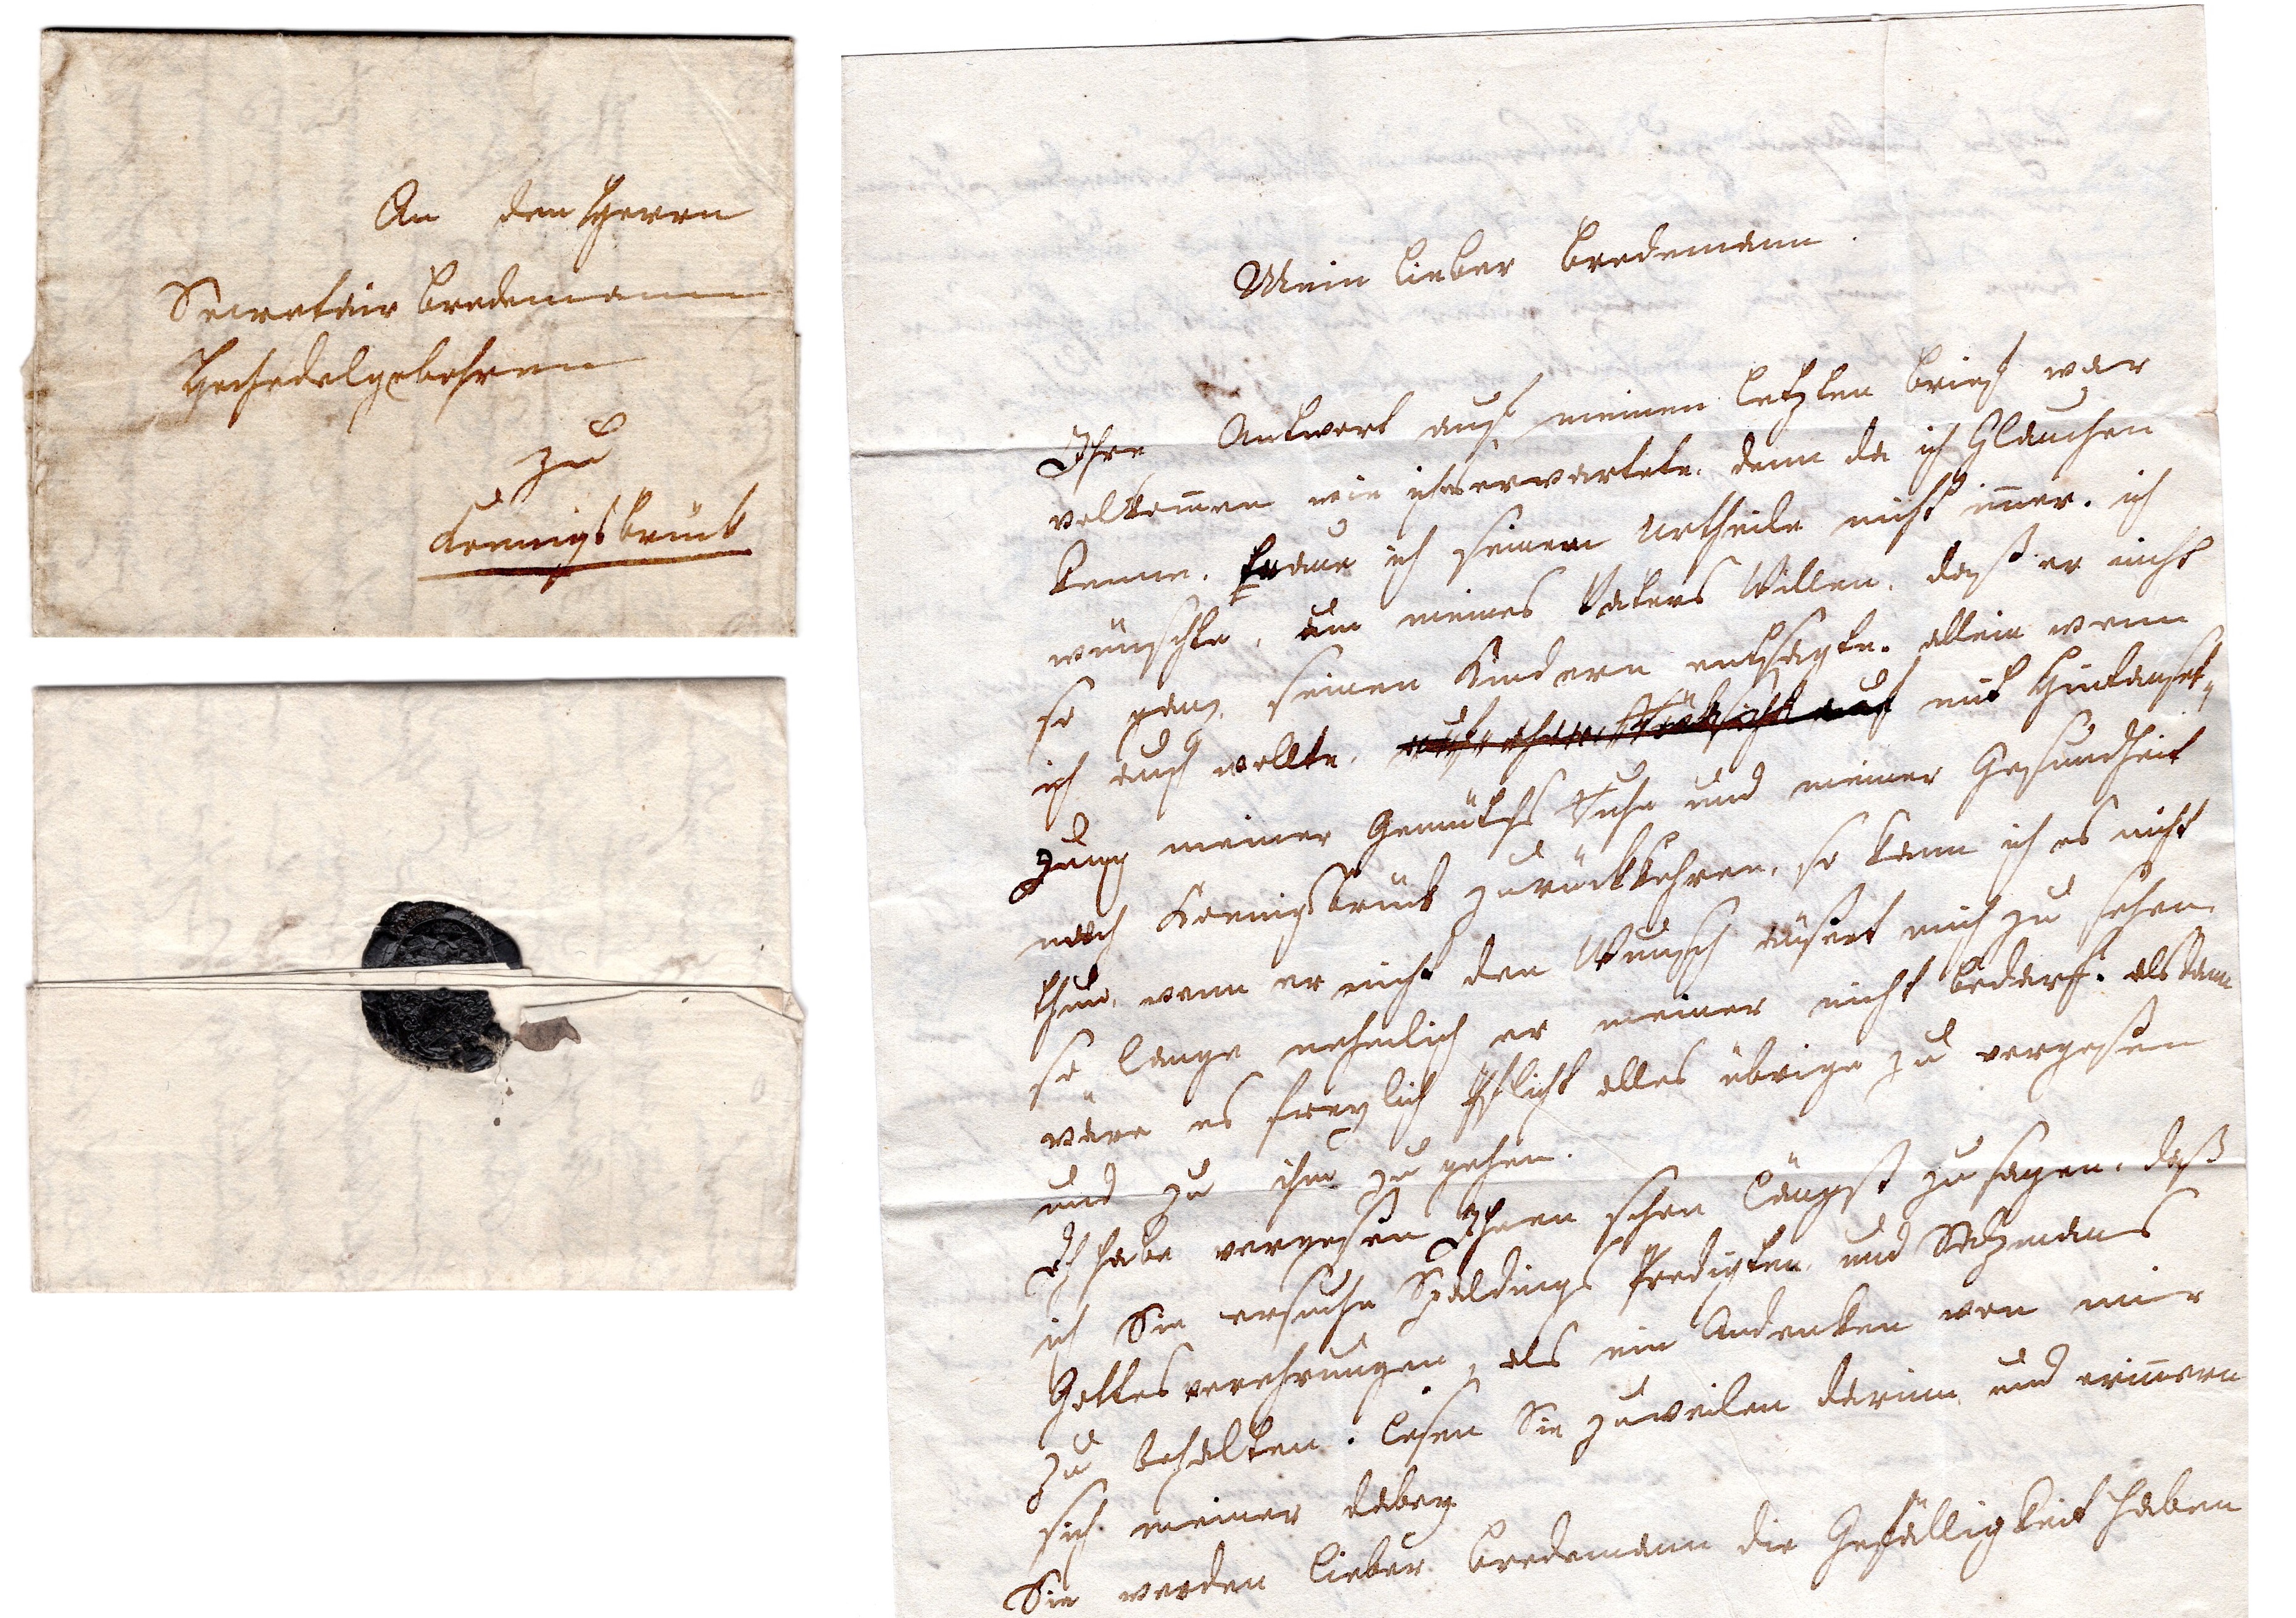 An den Herrn
Secretair Bredemann
Hochedelgebohren
zu
Koenigsbrück
Mein lieber Bredemann.
Ihre Antwort auf meinen letzten Brief war
volkom̅en wie ich erwartete. denn da ich Glauchen
kenne, traue ich seinem Urtheile nicht im̅er. ich
wünschte, um meines Vaters Willen, daß er nicht
so ganz seinen Kindern entsagte. allein wenn
ich auch wollte, mit Hintanset-
zung meiner Gemüths Ruhe und meiner Gesundheit
nach Koenigsbrück zurückkehren, so kann ich es nicht
thun, wenn er nicht den Wunsch äußert mich zu sehen.
so lange nehmlich er meiner nicht bedarf. alsdann
wäre es freylich Pflicht alles übrige zu vergeßen
und zu ihm zu gehen.
Ich habe vergeßen Ihnen schon längst zu sagen, daß
ich Sie ersuche Spaldings Predigten und Salzmans
Gottesverehrungen, als ein Andenken von mir
zu behalten. lesen Sie zuweilen darinn und erin̅ern
sich meiner dabey
Sie werden lieber Bredemann die Gefälligkeit haben